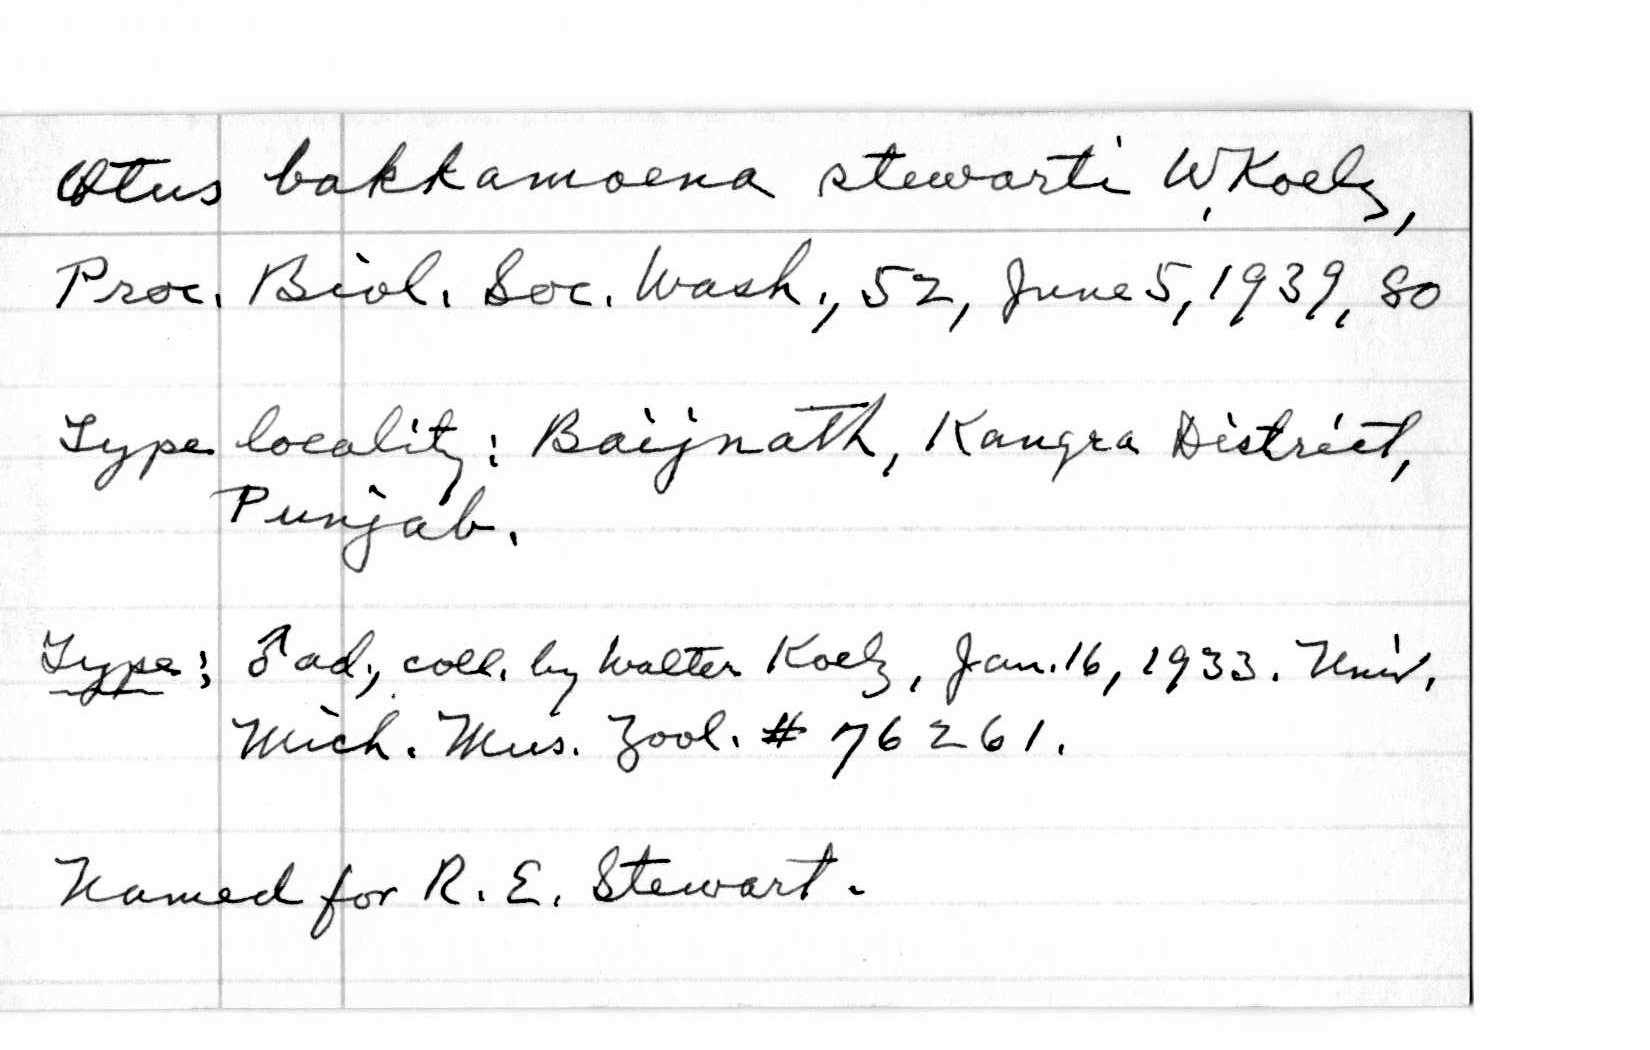 Otus bakkamoena stewarti W. Koelz,
Proc. Biol. Soc. Wash., 52, June 5, 1939, 80
Type locality: Baijnath, Kangra District,
Punjab.
Type: ♂ ad., coll. by Walter Koelz, Jan. 16, 1933. Univ.
Mich. Mus. Zool. # 76261.
Named for R. E. Stewart.